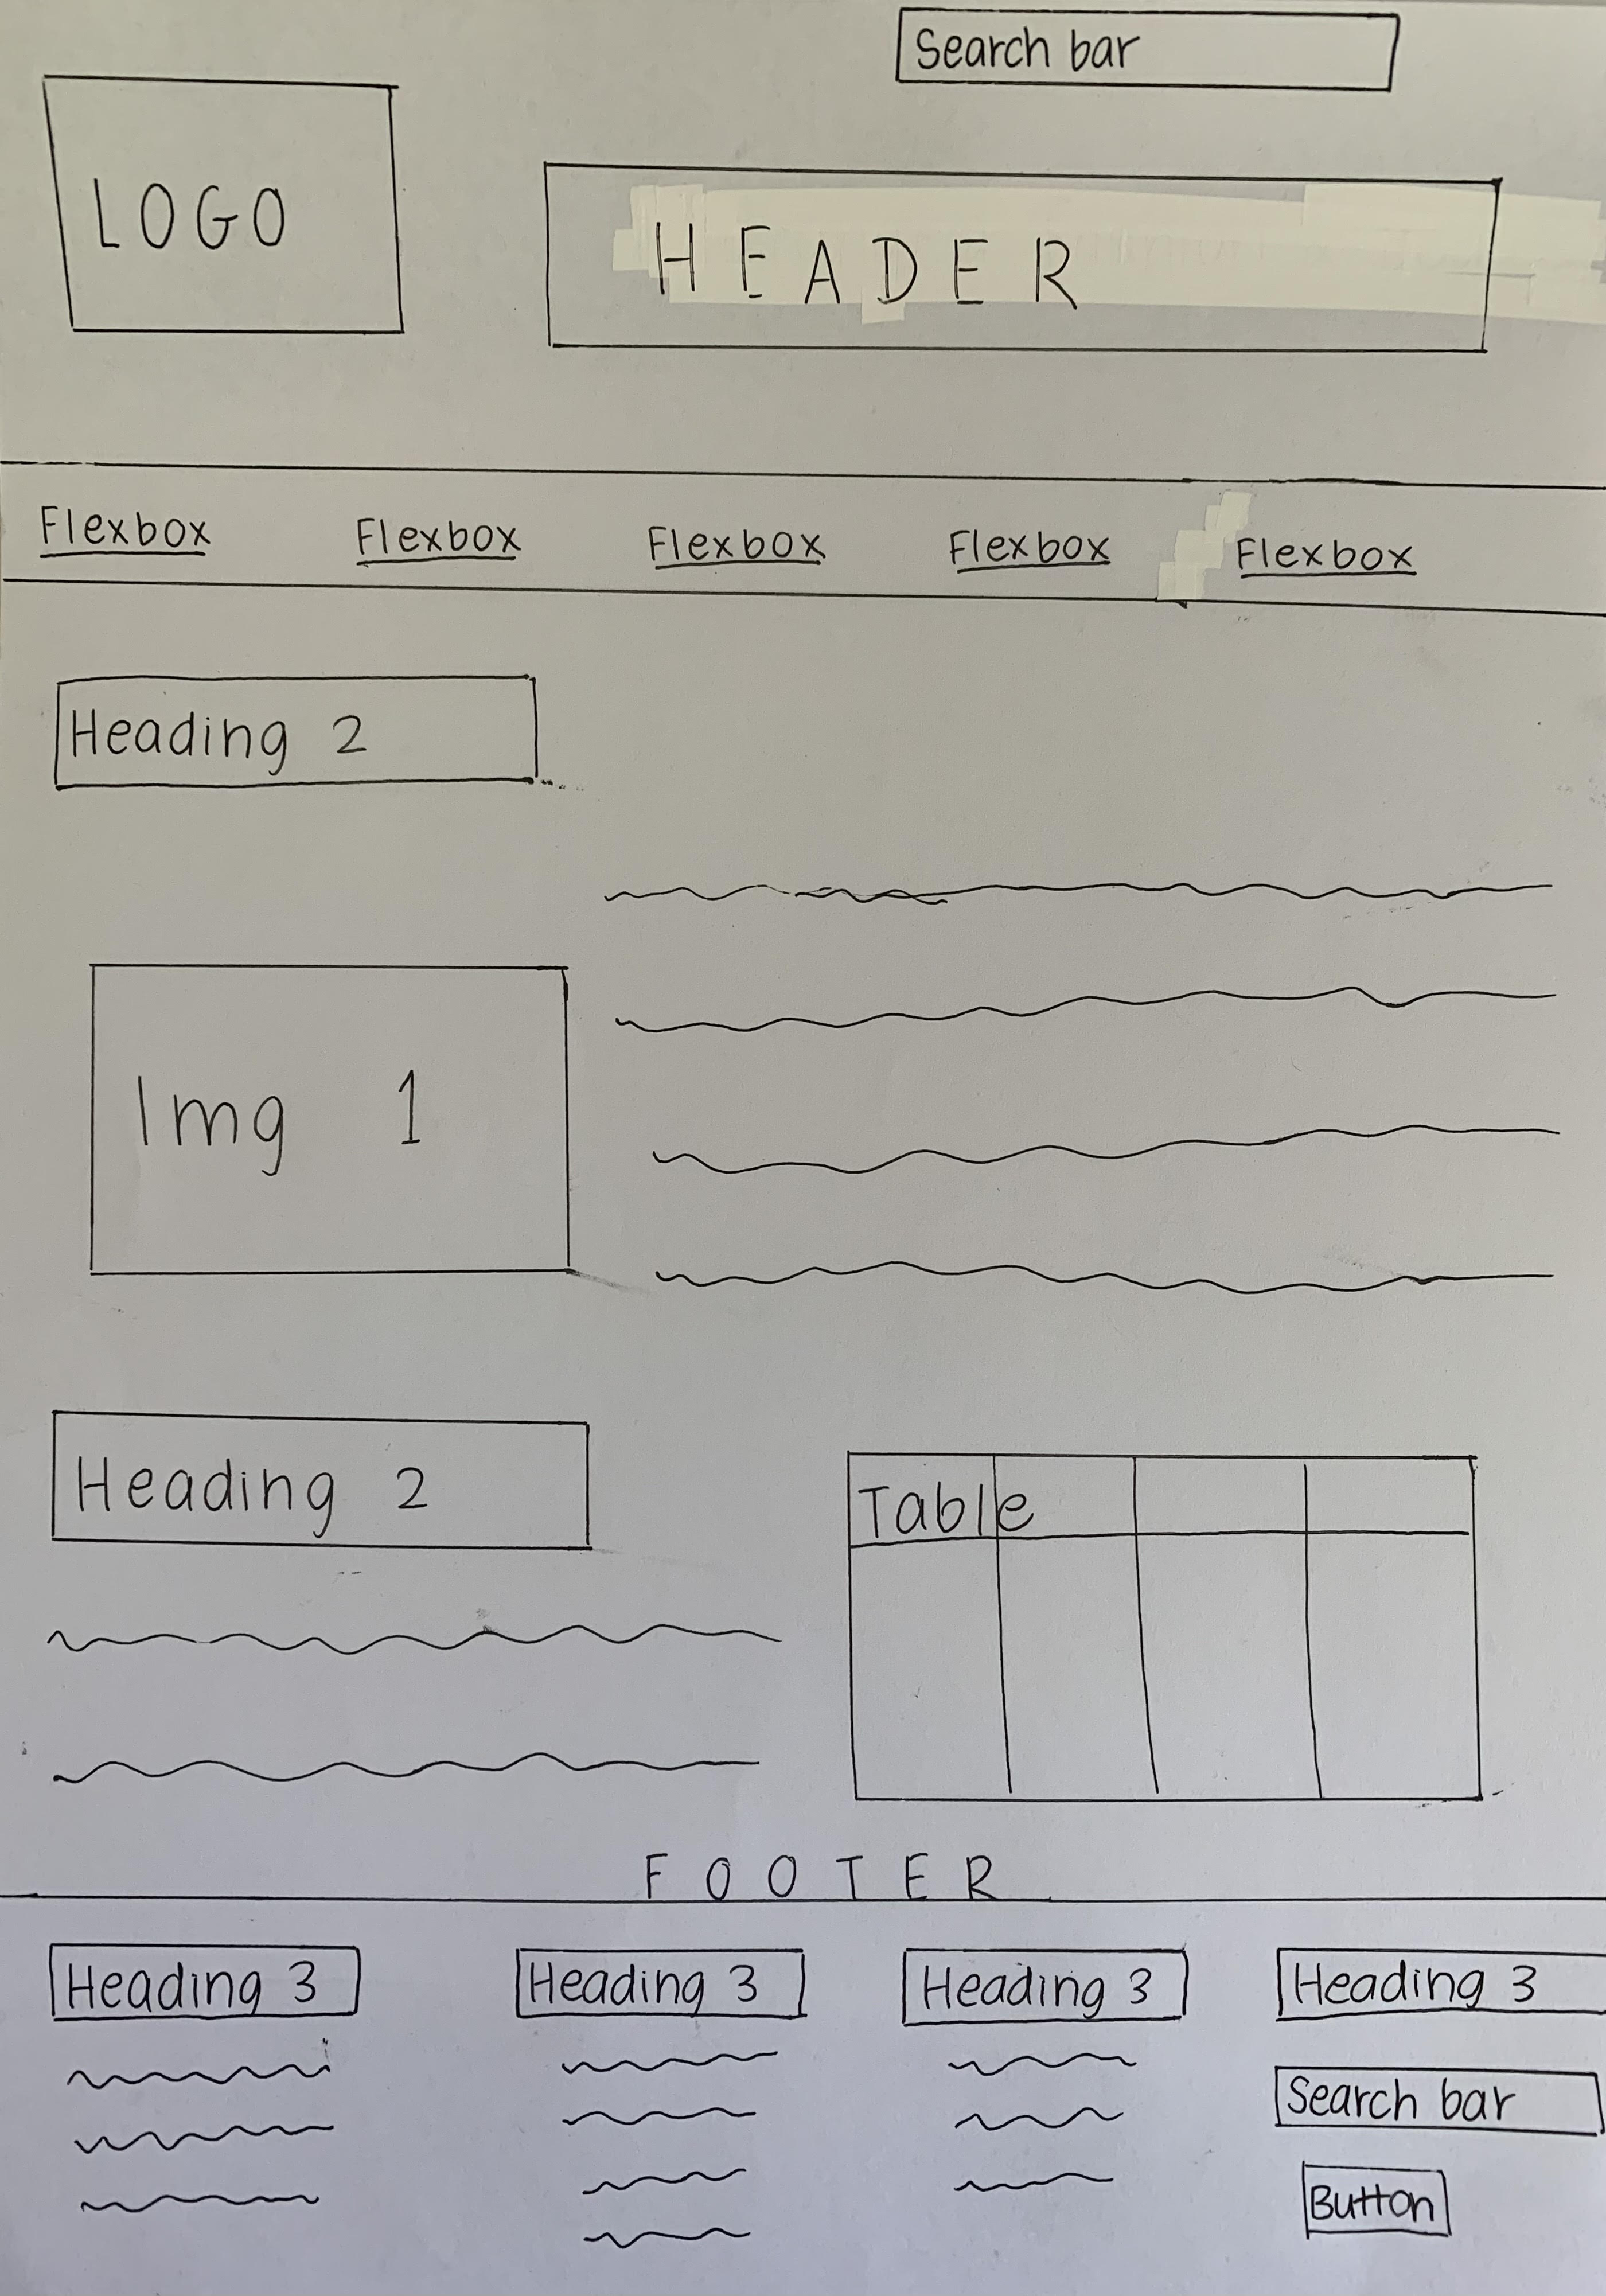 Search bar
LOGO
HEADER
Flexbox Flexbox Flexbox Flexbox Flexbox
Heading 2
Img 1
Heading 2
Table
FOOTER
Heading 3 Heading 3 Heading 3 Heading 3
Search bar
Button